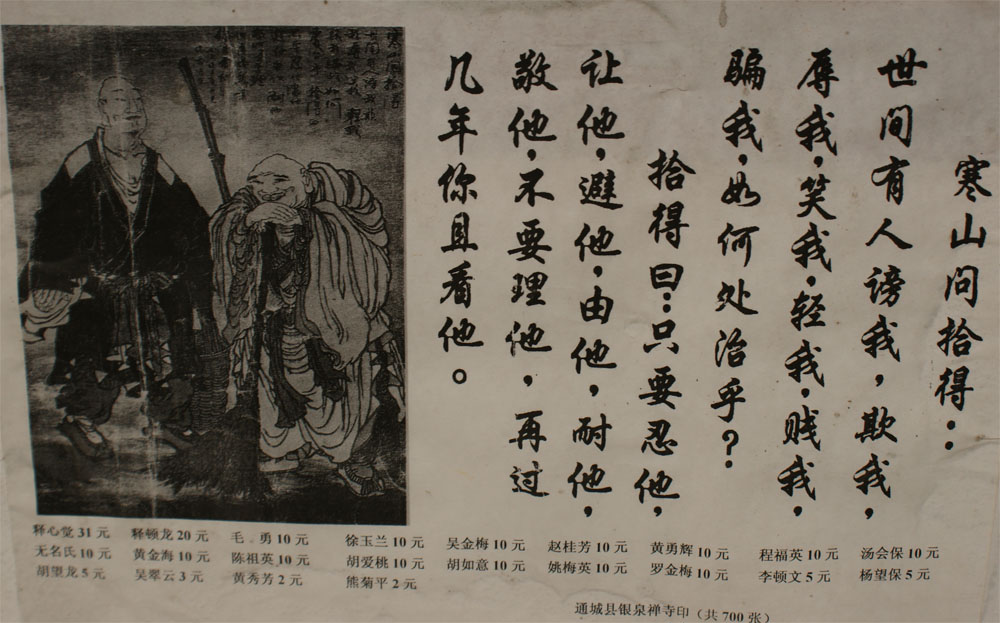 寒山问拾得：
世间有人谤我，欺我，
辱我，笑我，轻我，贱我，
骗我，如何处治乎？
拾得曰：只要忍他，
让他，避他，由他，耐他，
敬他，不要理他，再过
几年你且看他。
释心觉 31 元 释顿龙 20 元 毛 勇 10 元 徐玉兰 10 元 吴金梅 10 元 赵桂芳 10 元 黄勇辉 10 元 程福英 10 元 汤会保 10 元
无名氏 10 元 黄金海 10 元 陈祖英 10 元 胡爱桃 10 元 胡如意 10 元 姚梅英 10 元 罗金梅 10 元 李顿文 5 元 杨望保 5 元
胡望龙 5 元 吴翠云 3 元 黄秀芳 2 元 熊菊平 2 元
通城县银泉禅寺印（共 700 张）